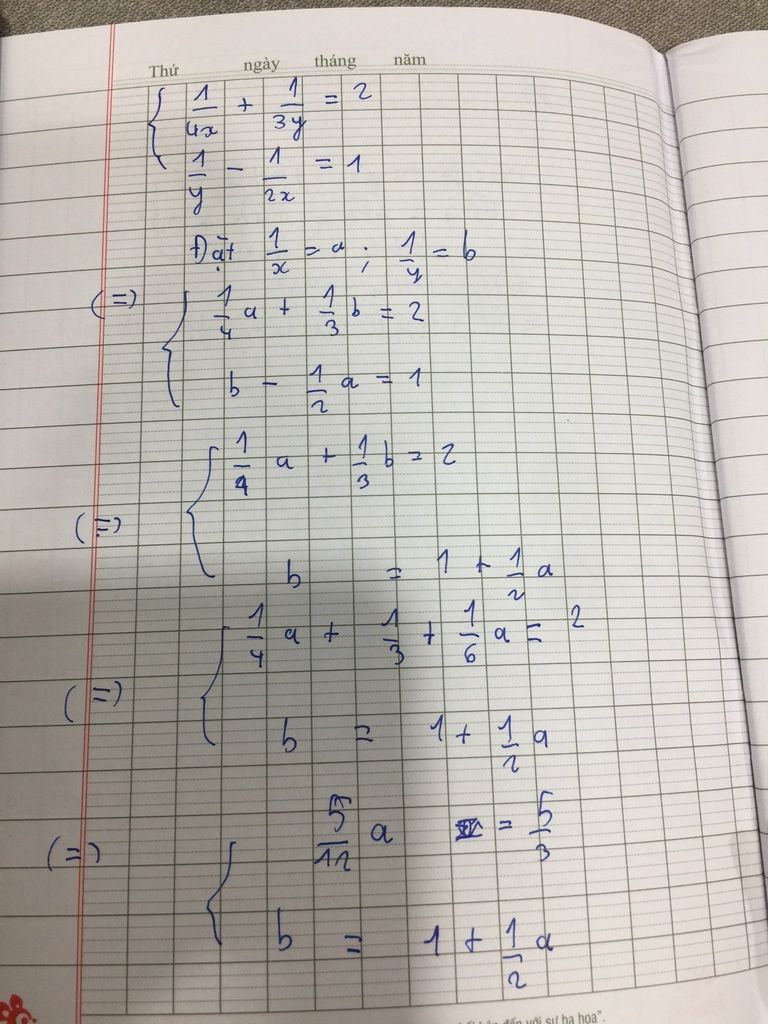 Thứ ngày tháng năm
{ 1/4x + 1/3y = 2
1/y - 1/2x = 1
Đặt 1/x = a ; 1/y = b
(=) { 1/4 a + 1/3 b = 2
b - 1/2 a = 1
(=) { 1/4 a + 1/3 b = 2
b = 1 + 1/2 a
(=) { 1/4 a + 1/3 + 1/6 a = 2
b = 1 + 1/2 a
(=) { 5/12 a = 5/3
b = 1 + 1/2 a
đến với sự ba hoa".